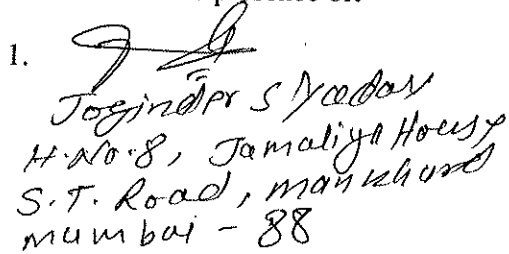 1.
Joginder S Yadav
H.No.8, Jamaliya House
S.T. Road, mankhurd
mumbai - 88